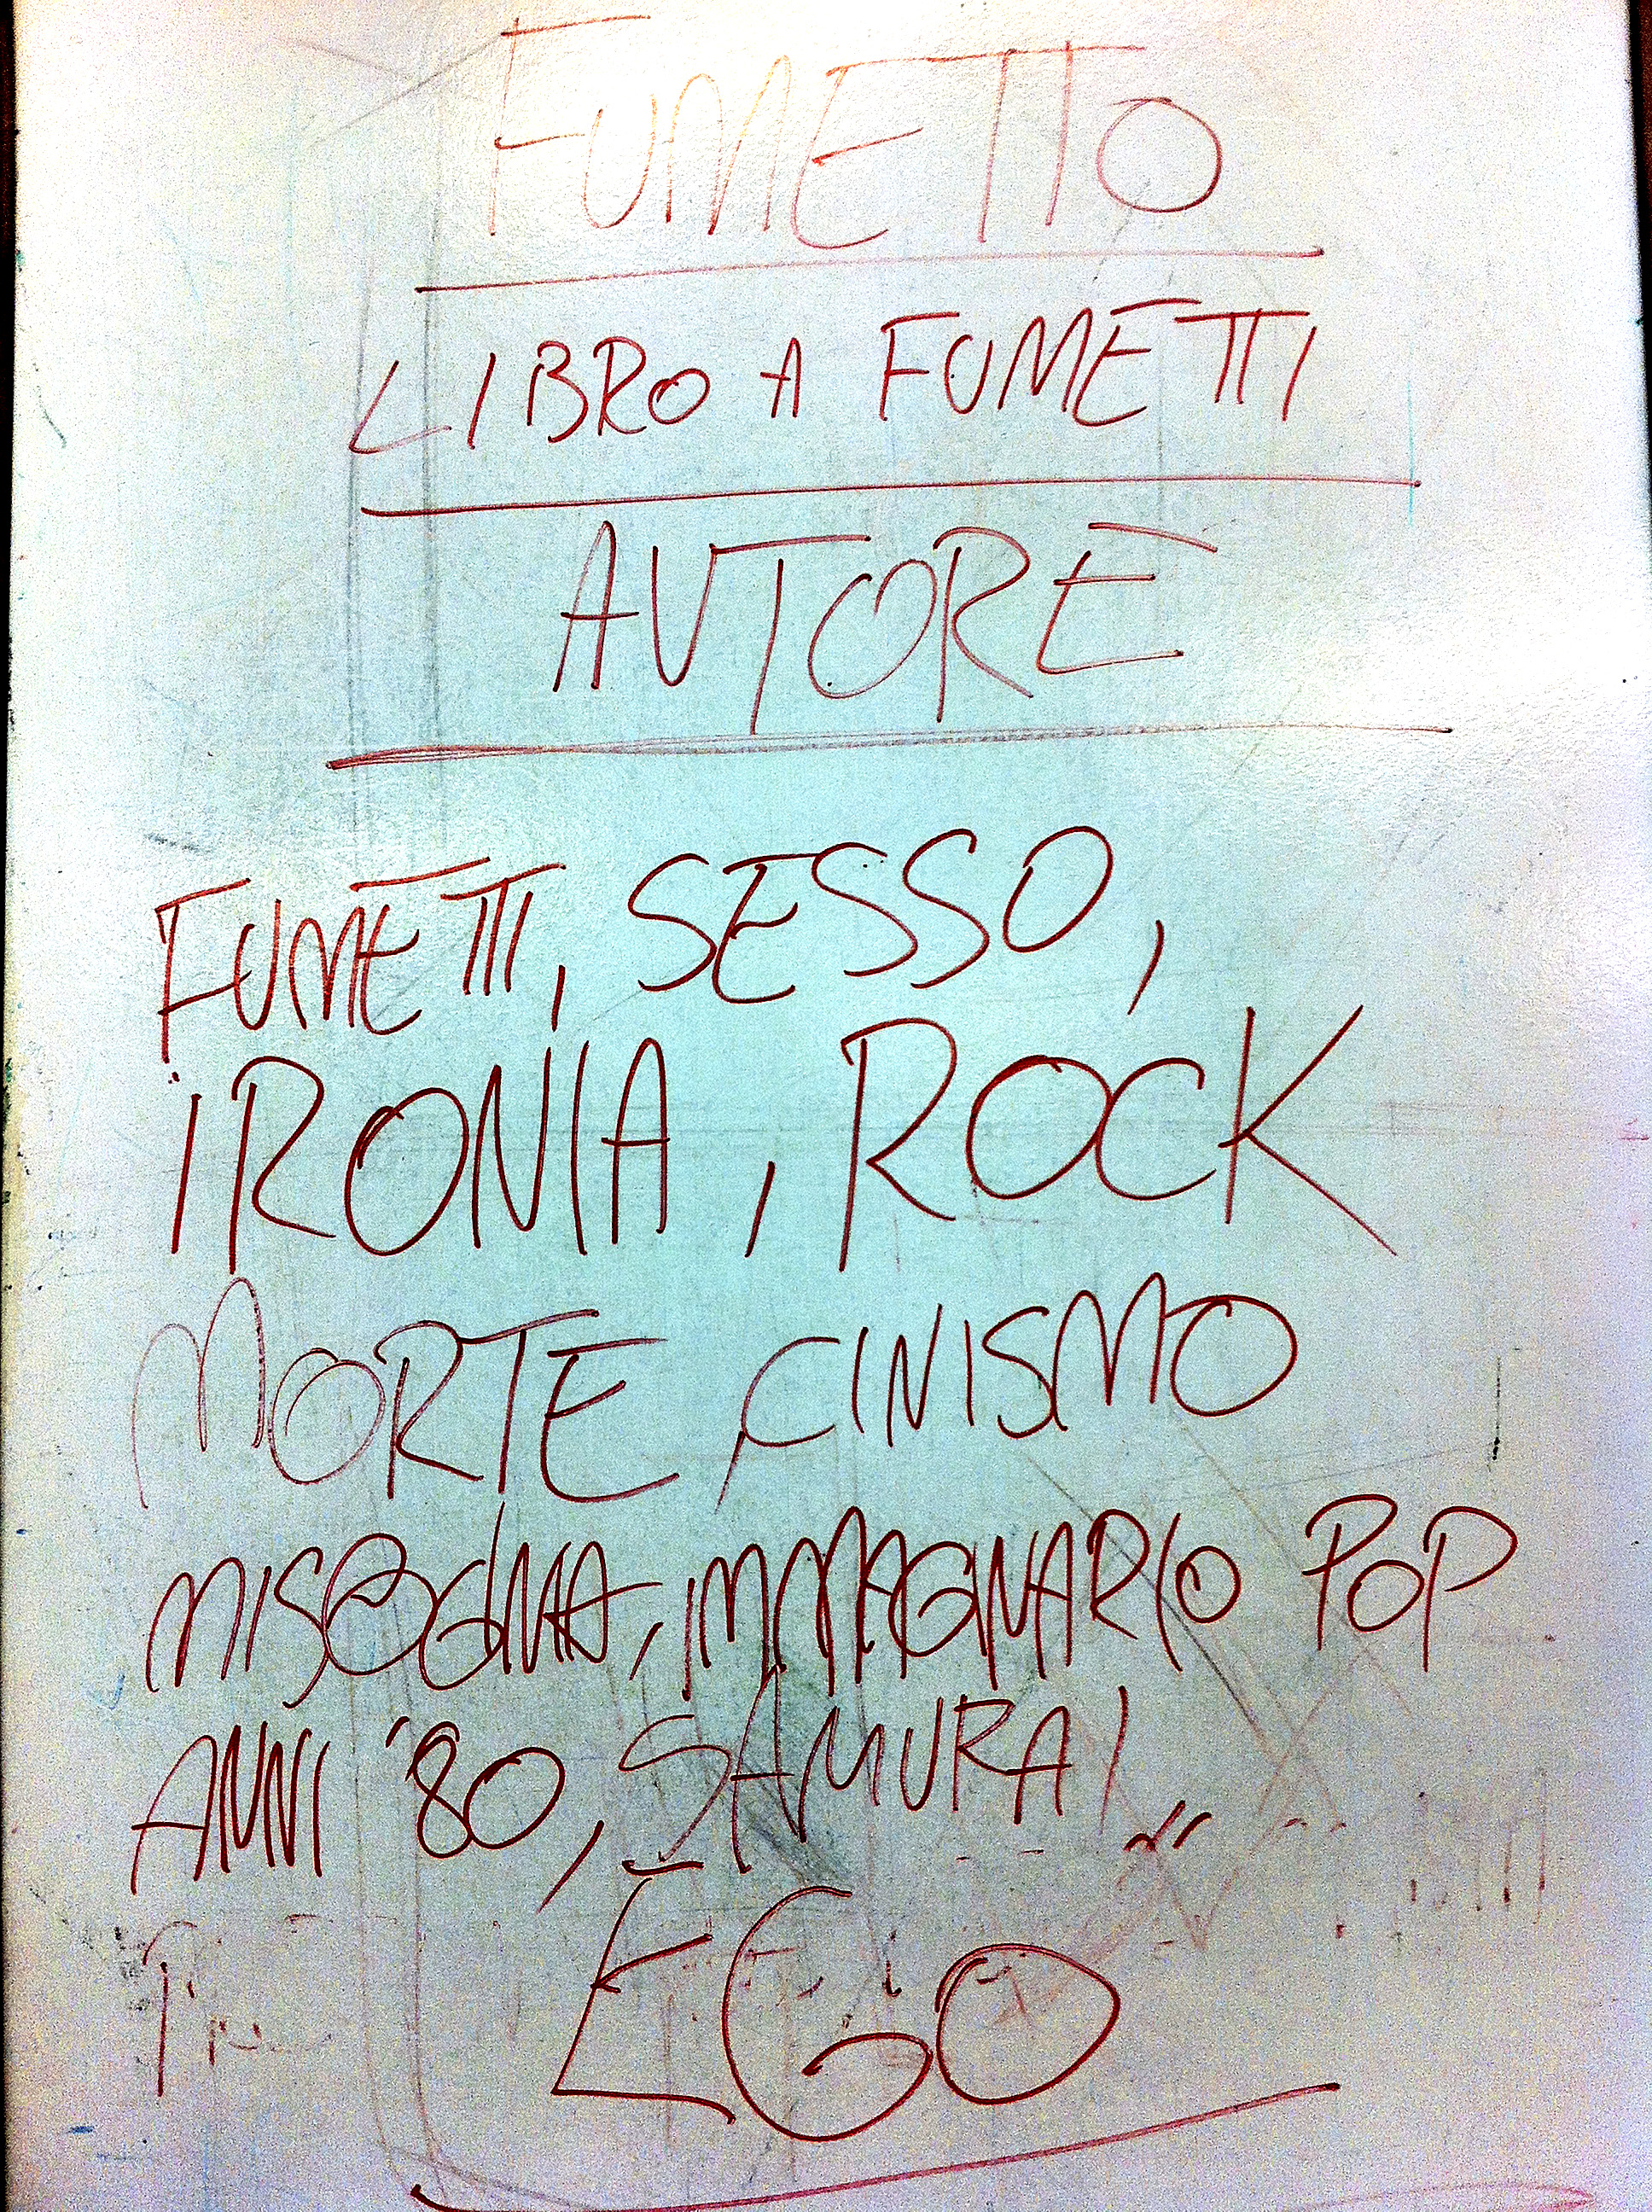 FUMETTO
LIBRO A FUMETTI
AUTORE
FUMETTI, SESSO,
IRONIA, ROCK
MORTE, CINISMO
MISOGINIA, IMMAGINARIO POP
ANNI '80, SAMURAI
EGO